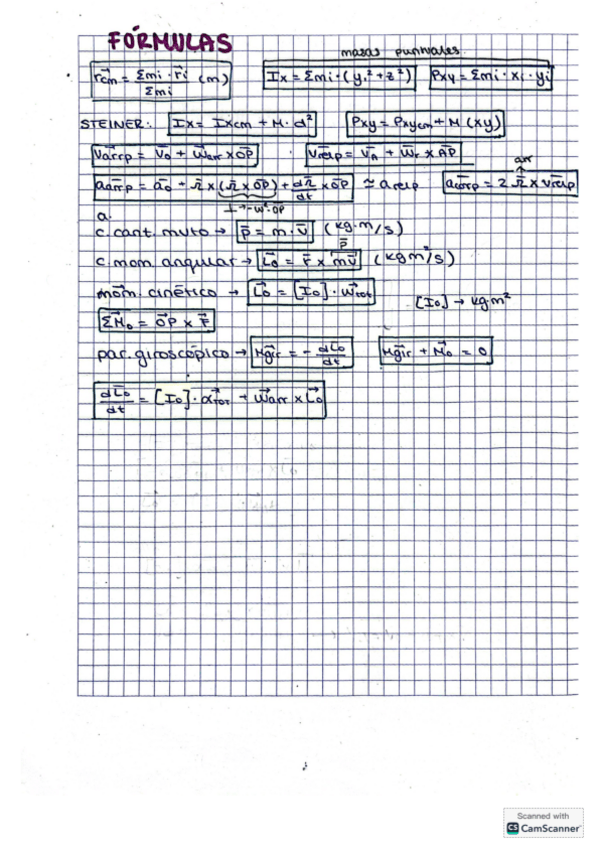 FÓRMULAS
masas puntuales
r⃗cm = Σmi · r⃗i / Σmi (m)   Ix = Σmi · (yi² + z²)   Pxy = Σmi · xi · yi
STEINER: Ix = Ixcm + M · d²   Pxy = Pxycm + M (xy)
v̄arrp = v̄o + w̄arr x O̅P̅   v̄relp = v̄A + w̄r x A̅P̅
arr
āarrp = āo + Ω̄ x (Ω̄ x O̅P̅) + dΩ̄/dt x O̅P̅ ≃ arelp   ācorp = 2 Ω̄ x v̄relp
⊥→ -w² · O̅P̅
a.
c. cant. mvto → p̄ = m · v̄ (kg · m/s)
p̄
c. mom. angular → L̄o = r̄ x mv̄ (kg m²/s)
mom. cinético → L⃗o = [Io] · w⃗tot   [Io] → kg · m²
ΣM⃗o = O̅P̅ x F̄
par. giroscópico → M⃗gir = - dL⃗o/dt   M⃗gir + M⃗o = 0
dL⃗o/dt = [Io] · α⃗TOT + w⃗arr x L⃗o
Scanned with
CS CamScanner